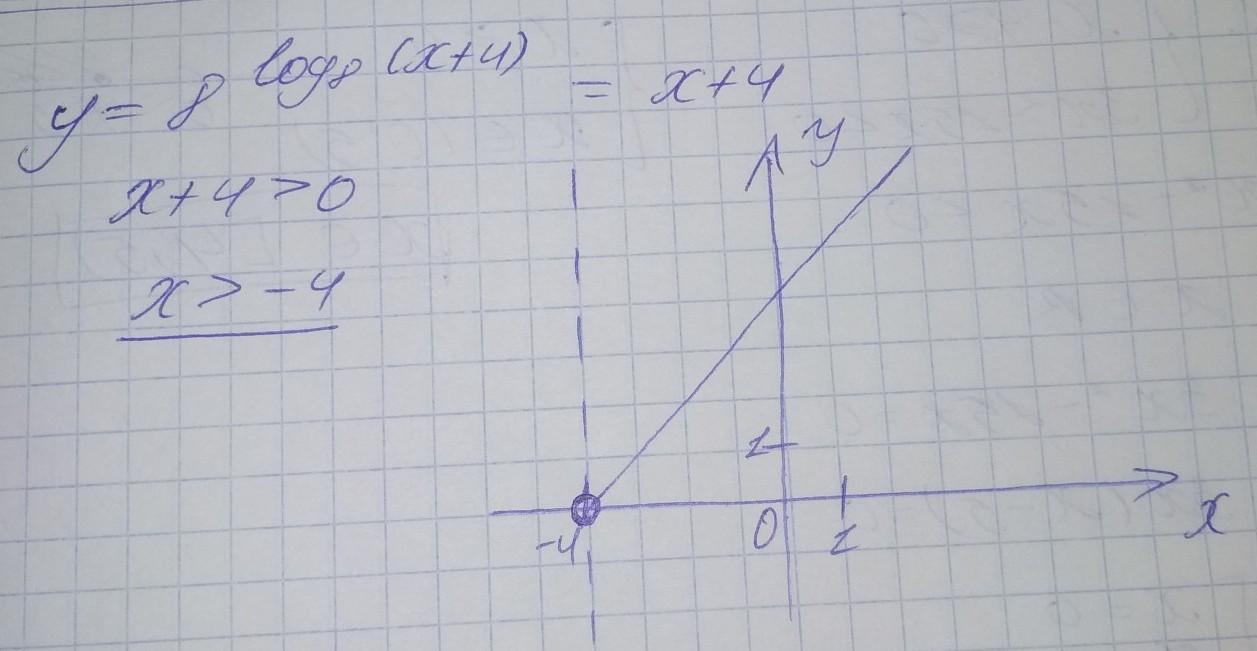 y = 8^log₈(x+4) = x+4
x+4>0
x>-4
y
1
-4
0
1
x